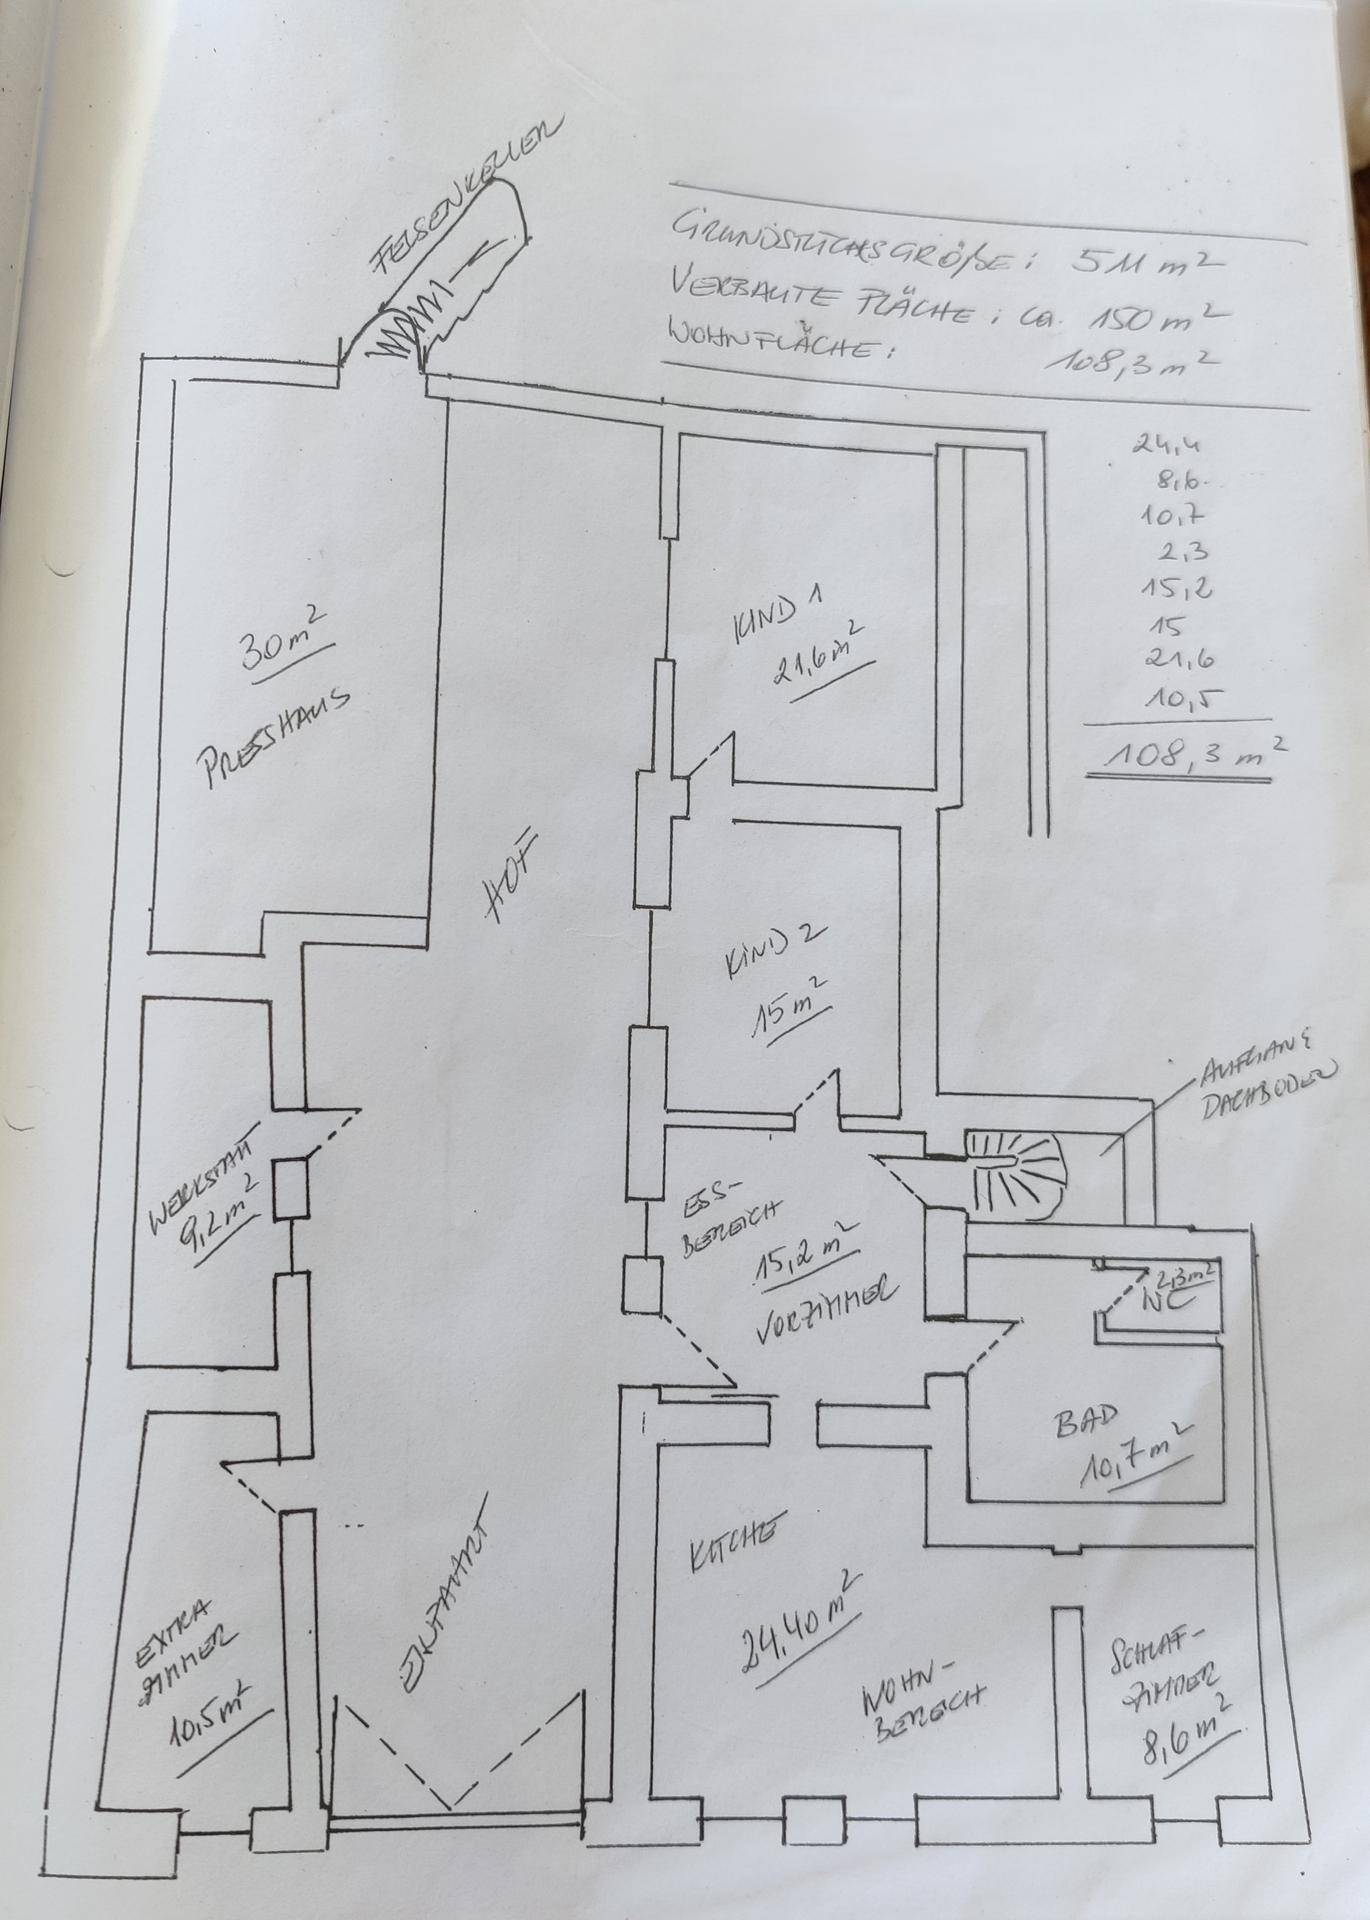 FELSENKELLER
GRUNDSTÜCKSGRÖßE: 511 m²
VERBAUTE FLÄCHE: ca. 150 m²
WOHNFLÄCHE: 108,3 m²
24,4
8,6
10,7
2,3
15,2
15
21,6
10,5
108,3 m²
KIND 1
21,6 m²
30 m²
PRESSHAUS
HOF
KIND 2
15 m²
AUFGANG
DACHBODEN
WERKSTATT
9,2 m²
ESS-
BEREICH
15,2 m²
VORZIMMER
2,3 m²
WC
BAD
10,7 m²
KÜCHE
24,40 m²
WOHN-
BEREICH
EINFAHRT
EXTRA
ZIMMER
10,5 m²
SCHLAF-
ZIMMER
8,6 m²